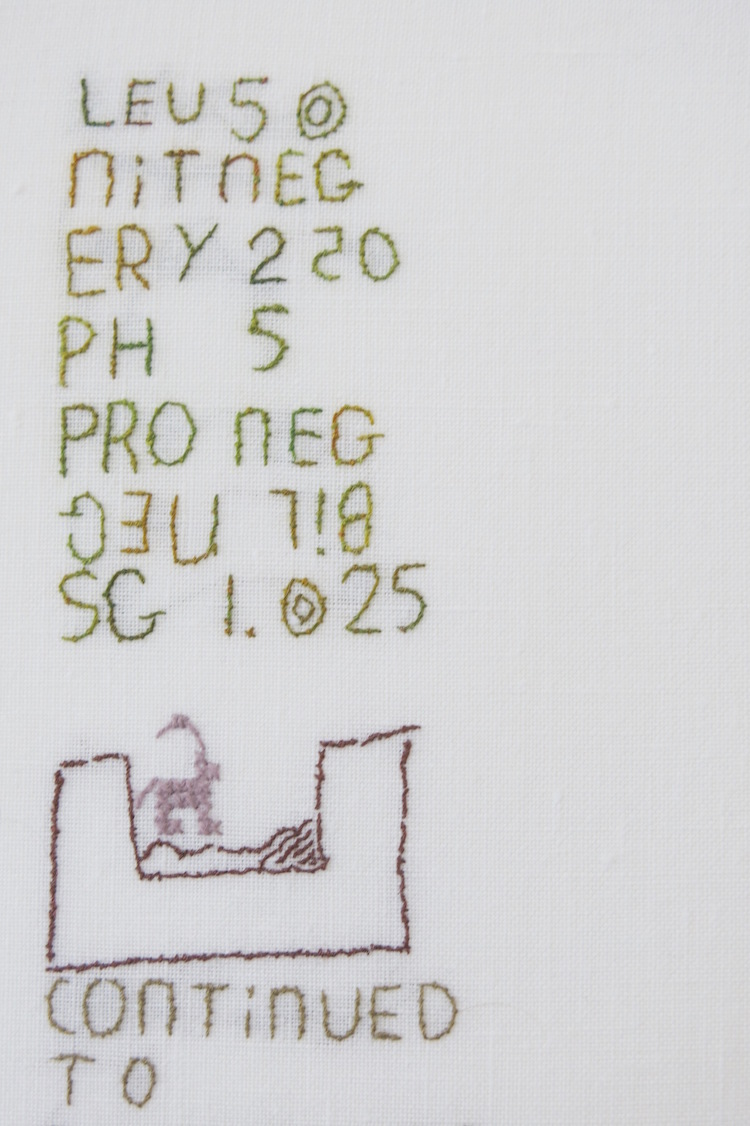 LEU 50
niT nEG
ERY 250
PH 5
PRO nEG
BiL nEG
SG 1.025
COnTinUED
TO